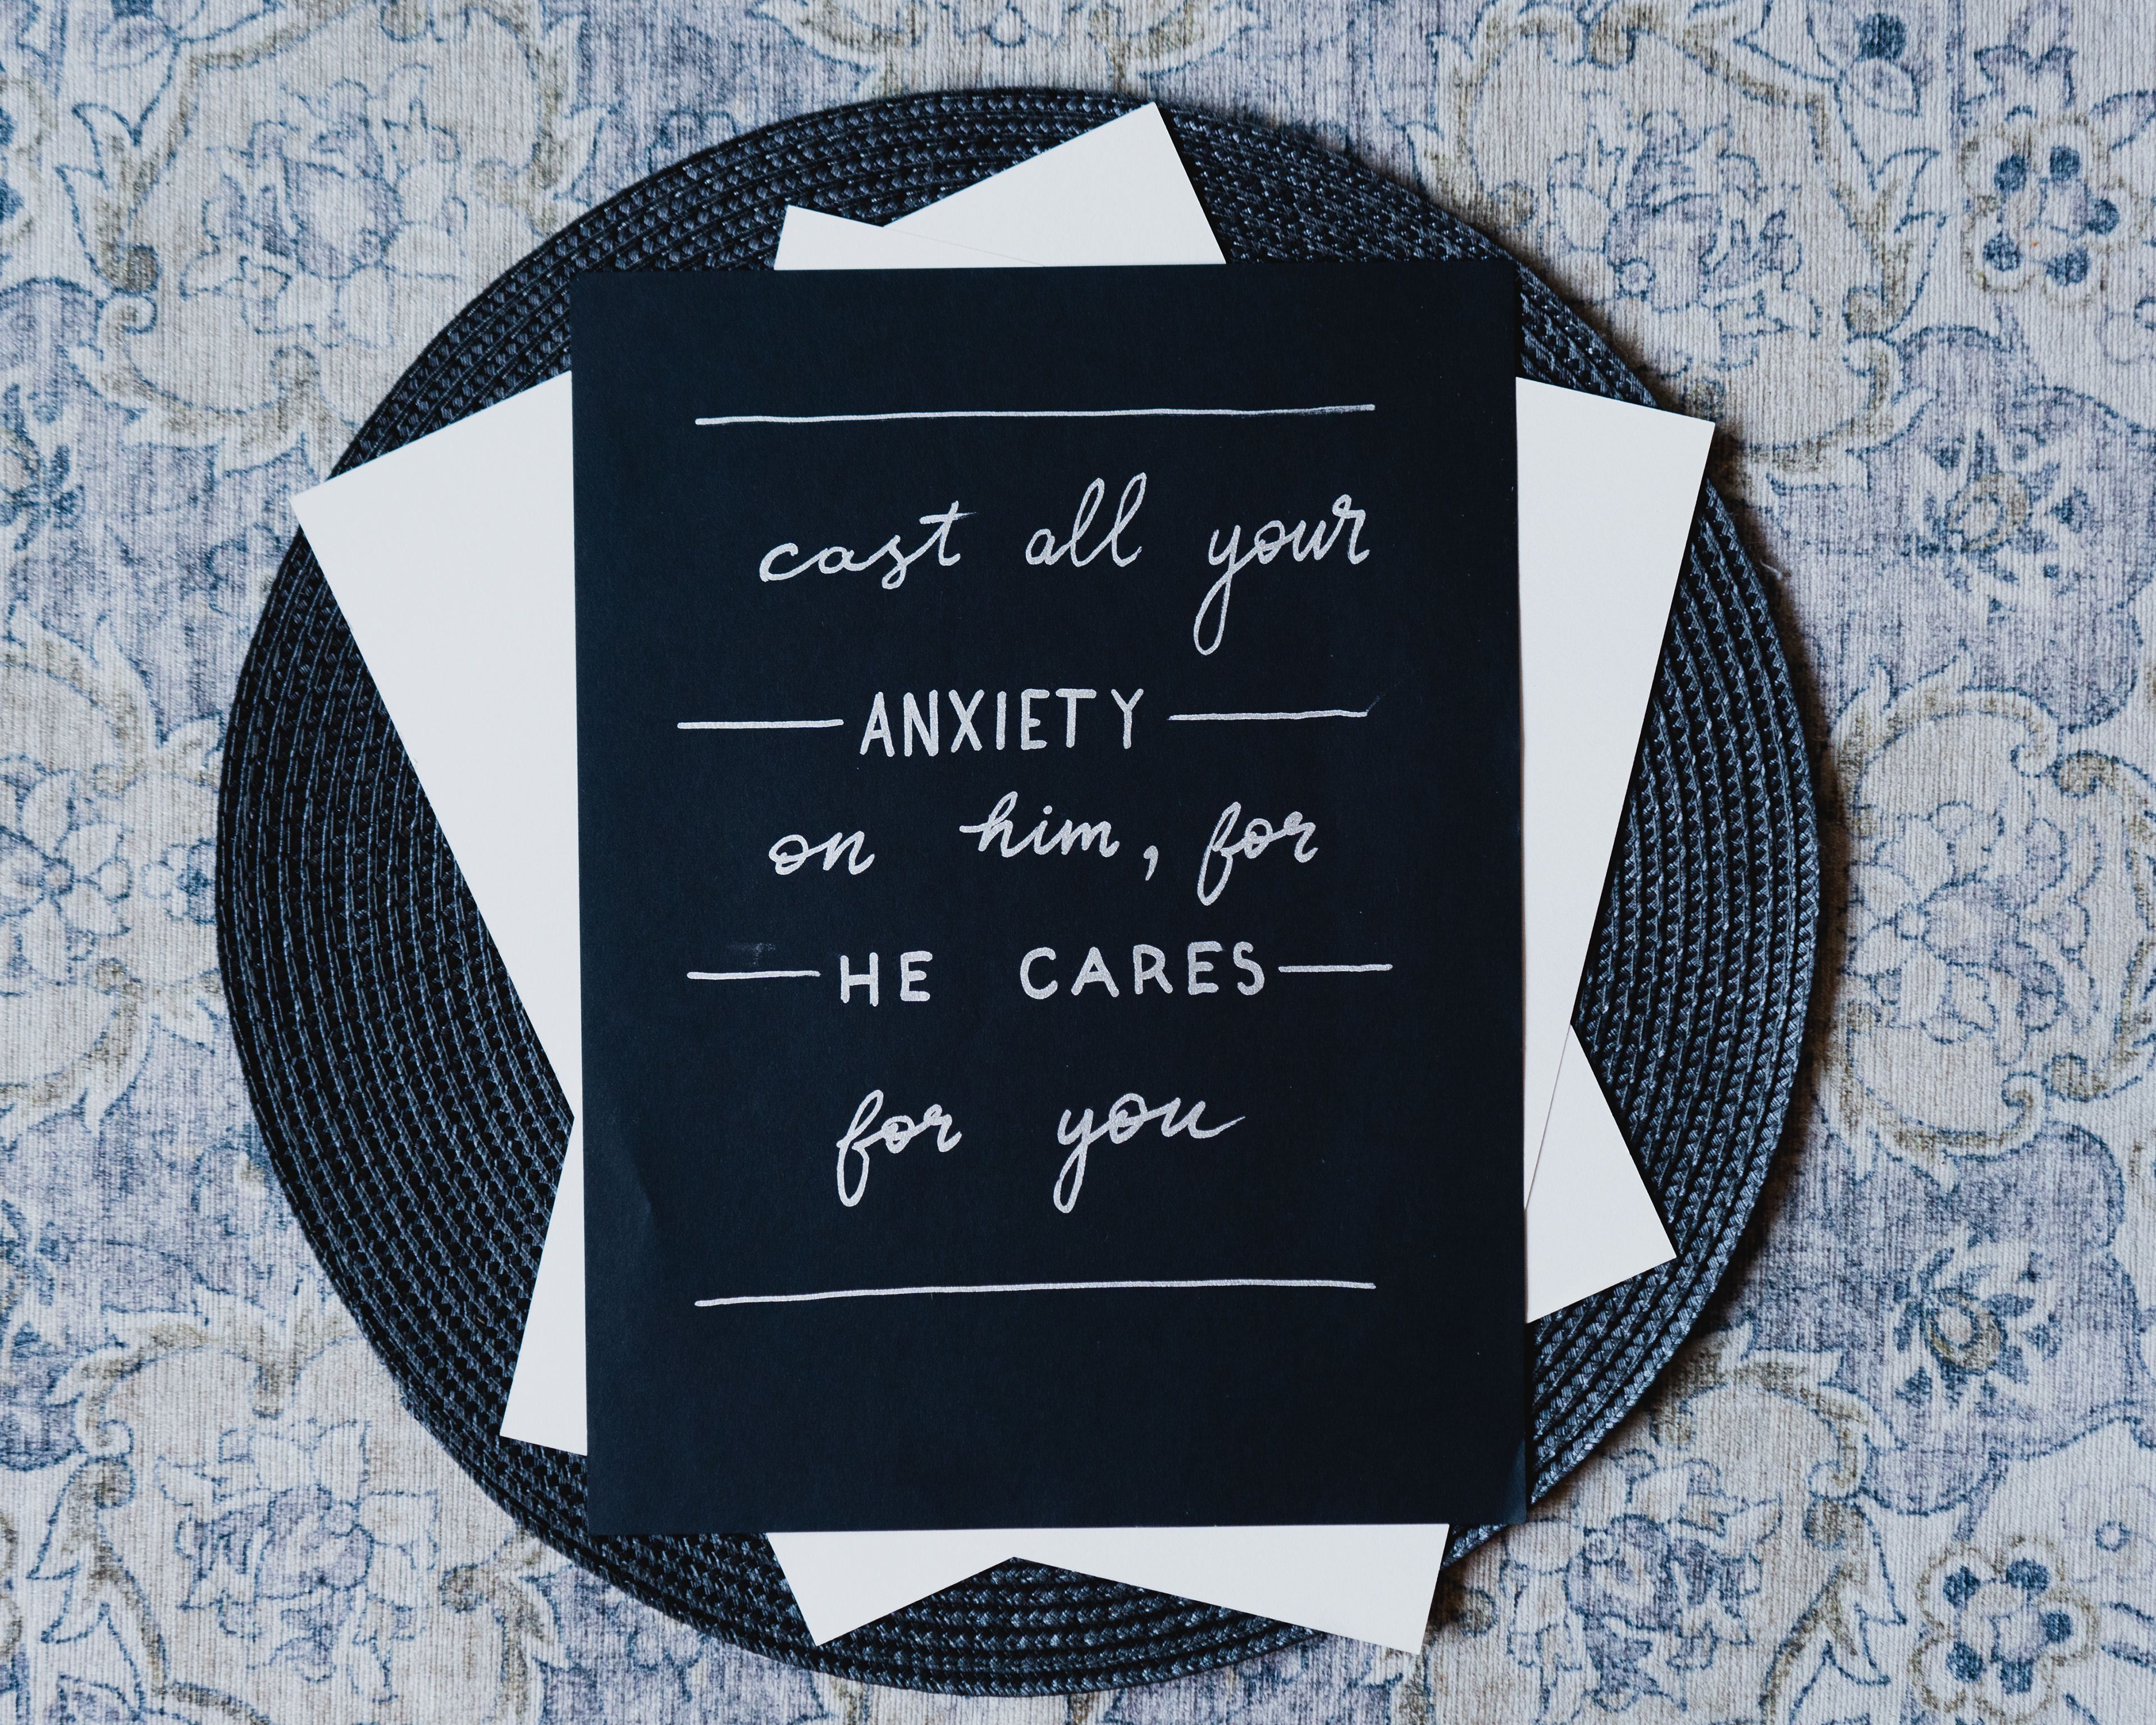 cast all your
ANXIETY
on him, for
HE CARES
for you